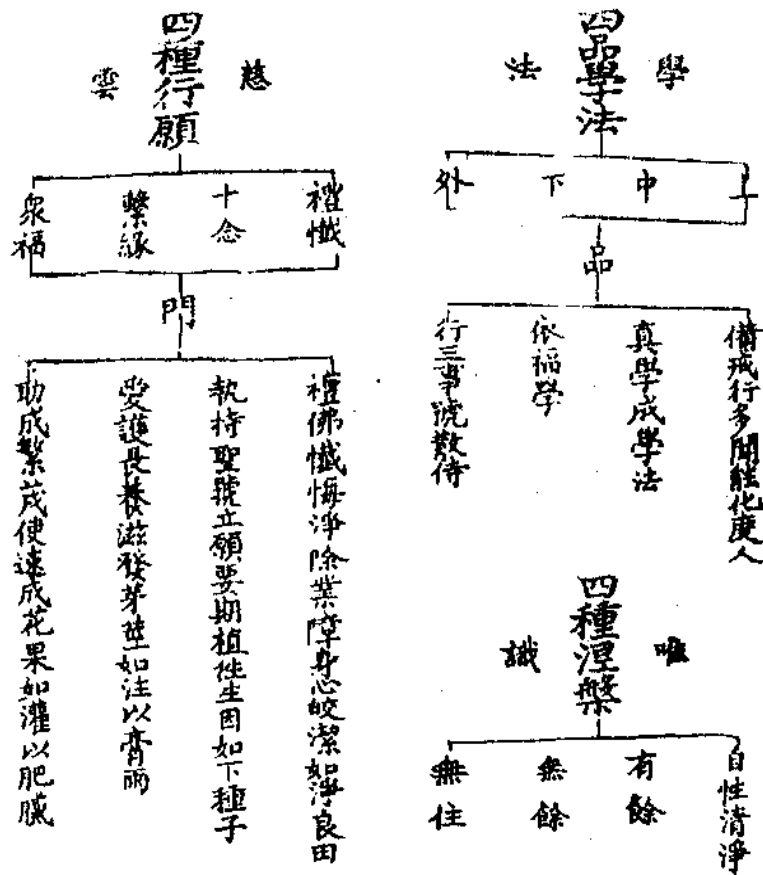 四品學法
學法
上
中
下
外
品
備戒行多聞能化度人
真學成學法
依福學
行三事號散侍
四種涅槃
唯識
自性清淨
有餘
無餘
無住
四種行願
慈雲
禮懺
十念
繫緣
眾福
門
禮佛懺悔淨除業障身心皎潔如淨良田
執持聖號立願要期植往生因如下種子
愛護長養滋發芽莖如注以膏雨
助成繁茂使速成花果如灌以肥膩